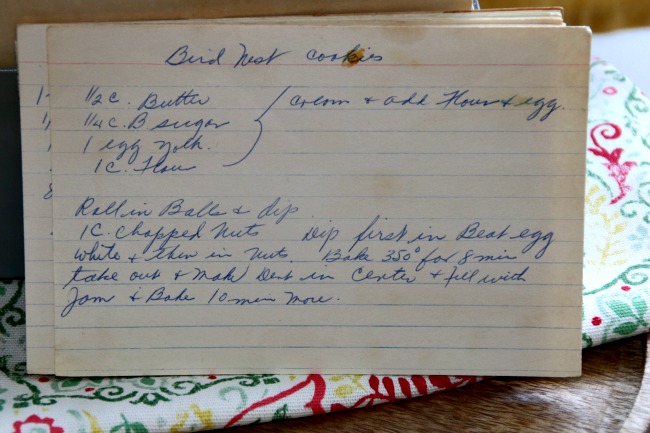 Bird Nest cookies
1/2 c. Butter
1/4 c. B sugar
1 egg yolk.
1 c. Flour
Cream & add Flour & egg.
Roll in Balls & dip
1 C. chopped Nuts Dip first in Beat egg
white & then in nuts. Bake 350° for 8 min
take out & Make Dent in Center & fill with
Jam & Bake 10 min more.